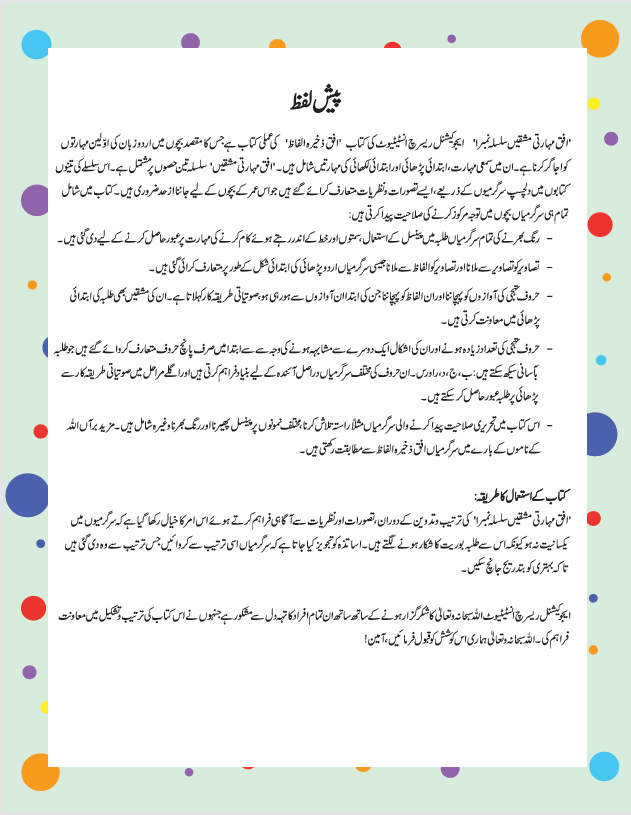 پیش لفظ
'افق مہارتی مشقیں سلسلہ نمبرا' ایجوکیشنل ریسرچ انسٹیٹیوٹ کی کتاب 'افق ذخیرہ الفاظ' کی عملی کتاب ہے جس کا مقصد بچوں میں اردو زبان کی اوّلین مہارتوں
کو اجاگر کرنا ہے۔ ان میں سمعی مہارت، ابتدائی پڑھائی اور ابتدائی لکھائی کی مہارتیں شامل ہیں۔ 'افق مہارتی مشقیں' سلسلہ تین حصوں پر مشتمل ہے۔ اس سلسلے کی تینوں
کتابوں میں دلچسپ سرگرمیوں کے ذریعے، ایسے تصورات و نظریات متعارف کرائے گئے ہیں جو اس عمر کے بچوں کے لیے جاننا ازحد ضروری ہیں۔ کتاب میں شامل
تمام ہی سرگرمیاں بچوں میں توجہ مرکوز کرنے کی صلاحیت پیدا کرتی ہیں:
- رنگ بھرنے کی تمام سرگرمیاں طلبہ میں پینسل کے استعمال، سمتوں اور خط کے اندر رہتے ہوئے کام کرنے کی مہارت پر عبور حاصل کرنے کے لیے دی گئی ہیں۔
- تصاویر کو تصاویر سے ملانا اور تصاویر کو الفاظ سے ملانا جیسی سرگرمیاں اردو پڑھائی کی ابتدائی شکل کے طور پر متعارف کرائی گئی ہیں۔
- حروف تہجی کی آوازوں کو پہچاننا اور ان الفاظ کو پہچاننا جن کی ابتدا ان آوازوں سے ہو رہی ہو، صوتیاتی طریقہ کار کہلاتا ہے۔ ان کی مشقیں بھی طلبہ کی ابتدائی
پڑھائی میں معاونت کرتی ہیں۔
- حروف تہجی کی تعداد زیادہ ہونے اور ان کی اشکال ایک دوسرے سے مشابہہ ہونے کی وجہ سے سے ابتدا میں صرف پانچ حروف متعارف کروائے گئے ہیں جو طلبہ
بآسانی سیکھ سکتے ہیں: ب، ج، د، ر اور س۔ ان حروف کی مختلف سرگرمیاں دراصل آئندہ کے لیے بنیاد فراہم کرتی ہیں اور اگلے مراحل میں صوتیاتی طریقہ کار سے
پڑھائی پر طلبہ عبور حاصل کر سکتے ہیں۔
- اس کتاب میں تحریری صلاحیت پیدا کرنے والی سرگرمیاں مثلاً راستہ تلاش کرنا، مختلف نمونوں پر پینسل پھیرنا اور رنگ بھرنا وغیرہ شامل ہیں۔ مزید برآں اللہ
کے ناموں کے بارے میں سرگرمیاں افق ذخیرہ الفاظ سے مطابقت رکھتی ہیں۔
کتاب کے استعمال کا طریقہ:
'افق مہارتی مشقیں سلسلہ نمبرا' کی ترتیب و تدوین کے دوران، تصورات اور نظریات سے آگاہی فراہم کرتے ہوئے اس امر کا خیال رکھا گیا ہے کہ سرگرمیوں میں
یکسانیت نہ ہو کیونکہ اس سے طلبہ بوریت کا شکار ہونے لگتے ہیں۔ اساتذہ کو تجویز کیا جاتا ہے کہ سرگرمیاں اسی ترتیب سے کروائیں جس ترتیب سے وہ دی گئی ہیں
تاکہ بہتری کو بتدریج جانچ سکیں۔
ایجوکیشنل ریسرچ انسٹیٹیوٹ اللہ سبحانہ وتعالیٰ کا شکر گزار ہونے کے ساتھ ساتھ ان تمام افراد کا تہہ دل سے مشکور ہے جنہوں نے اس کتاب کی ترتیب و تشکیل میں معاونت
فراہم کی۔ اللہ سبحانہ وتعالیٰ ہماری اس کوشش کو قبول فرمائیں، آمین!